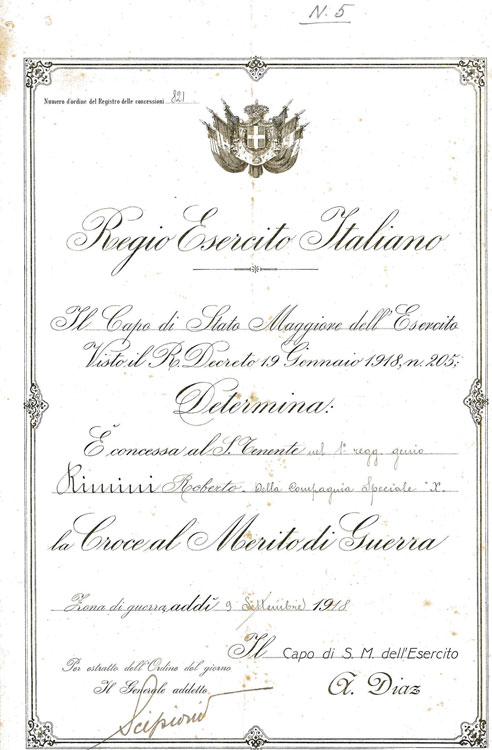 N. 5
Numero d'ordine del Registro delle concessioni 821
Regio Esercito Italiano
Il Capo di Stato Maggiore dell'Esercito
Visto il R. Decreto 19 Gennaio 1918, n. 205;
Determina:
È concessa al S. Tenente nel 1° regg. genio
Rimini Roberto della Compagnia Speciale "X.
la Croce al Merito di Guerra
Zona di guerra, addì 9 Settembre 1918
Il Capo di S. M. dell'Esercito
Per estratto dell'Ordine del giorno
Il Generale addetto
A. Diaz
Scipioni